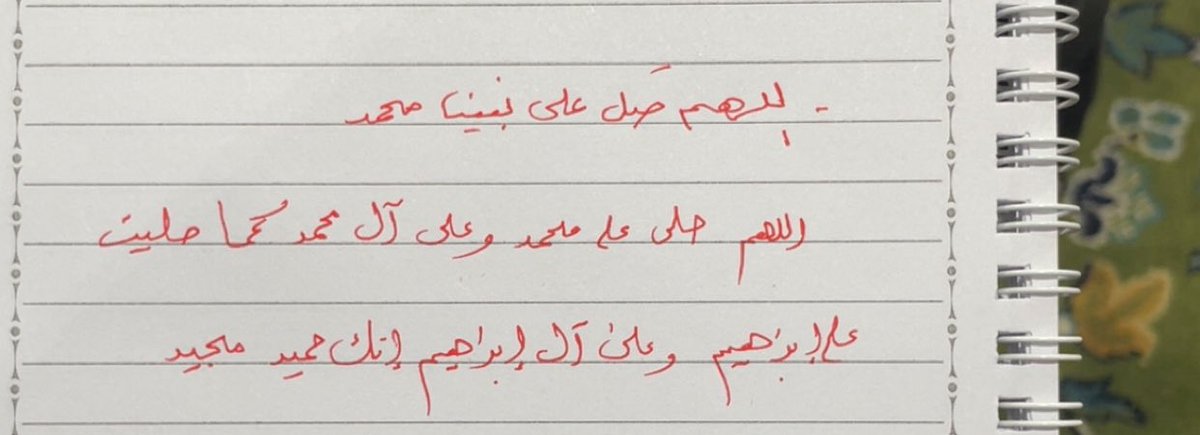 - اللهم صَل على نبينا محمد
اللهم صلى على محمد وعلى آل محمد كما صليت
على إبراهيم وعلى آل إبراهيم إنك حميد مجيد